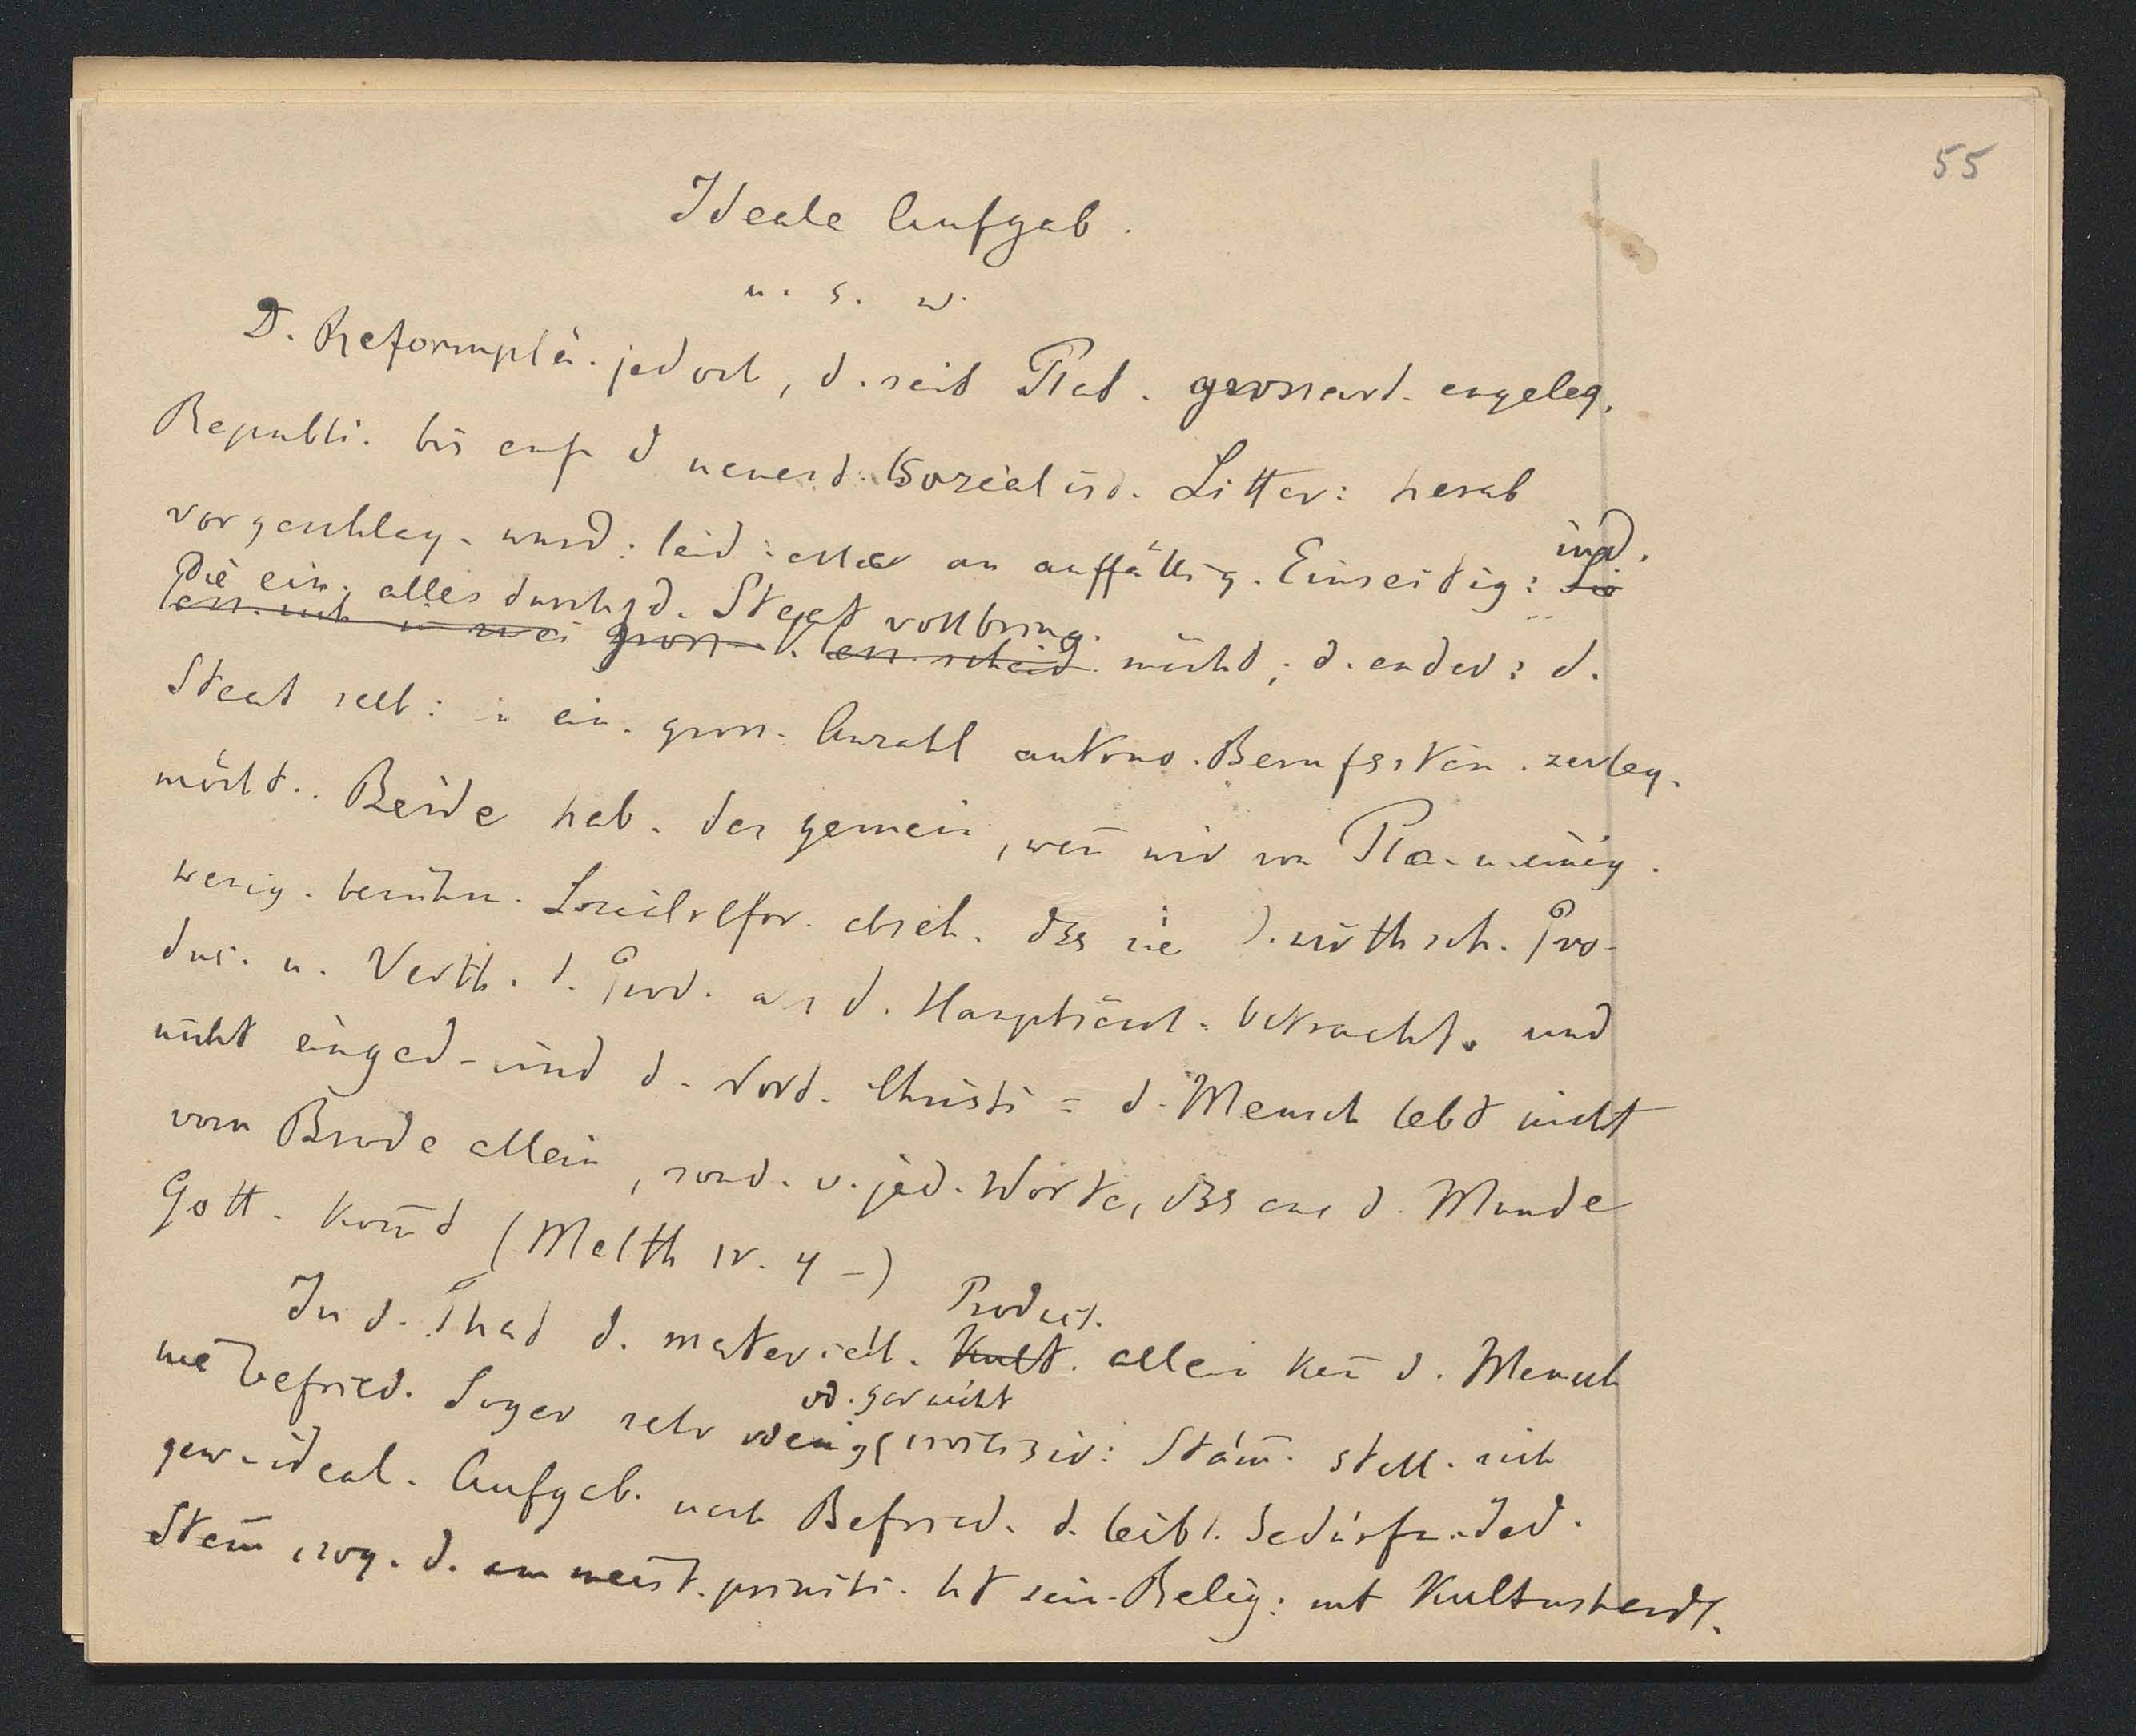 55
Ideale Aufgab.
u. s. w.
D. Reformplä. jed och, d. seit Plat. grossart. angeleg.
Republi. bis auf d neuest. Sozialist. Litter: herab
vorgeschlag. wurd: leid: aller an auffällig. Einseitig: ind.
Die ein. alles durch d. Staat vollbring.
lass. sich in zwei gross. lass. scheid. möcht, d. ander: d.
Staat selb: in ein. gross. Anzahl autono. Berufsstän. zerleg.
möcht.. Beide hab. das gemein, wen̄ wir von Pla. u. einig.
wenig. berühm. Sozialrefor. abseh. dss sie d. wirthsch. Pro-
duc. u. Verth. d. Prod. als d. Hauptsach. betracht. und
nicht einged. sind d. Word. Christi = d. Mensch lebt nicht
vom Brode allein, sond. v. jed. Worte, dss aus d. Munde
Gott. kom̄t (Matth IV. 4 -)
Product.
In d. That d. materiell. Kult. allein kan̄ d. Mensch
od. gar nicht
nie befried. Sogar sehr wenig civilisir: Stäm̄. stell. sich
gew. ideal. Aufgab. nach Befried. d. leibl. Bedürfn. Jed.
Stam̄, sog. d. am meist. primiti. ht sein. Relig: mt Kultushandl.